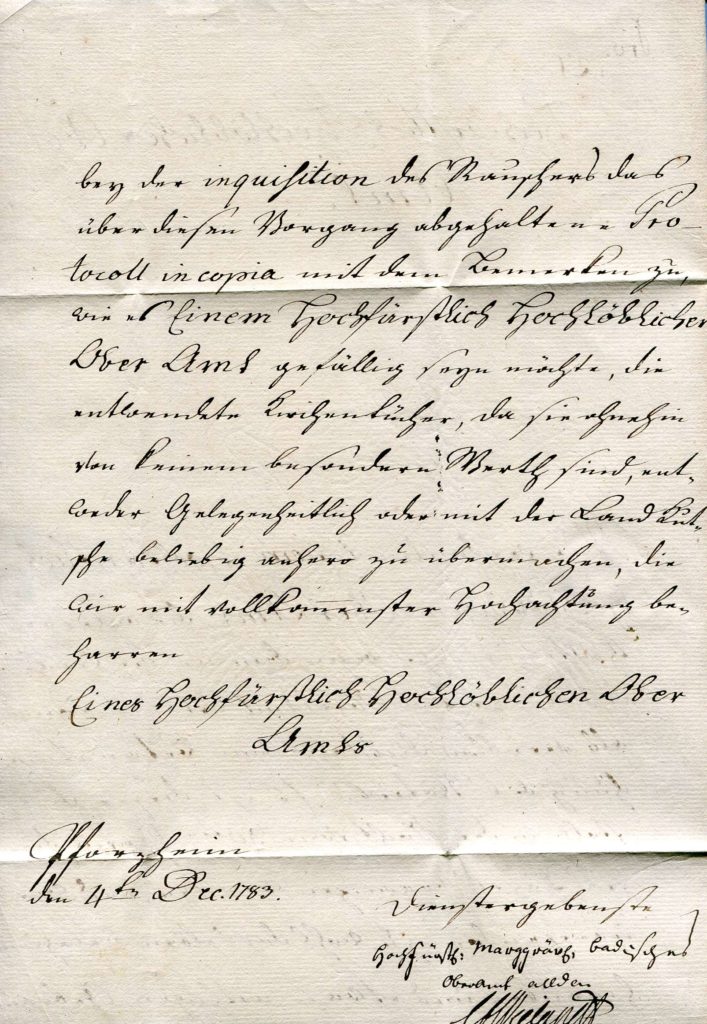 bey der inquisition des Rauschers das
über diesen Vorgang abgehaltene Pro-
tocoll in copia mit dem Bemerken zu,
wie es Einem Hochfürstlich Hochlöblichen
Ober Amt gefällig seyn möchte, die
entwendete Kirchenbücher, da sie ohnehin
von keinem besondern Werth sind, ent-
weder Gelegenheitlich oder mit der Land Kut-
sche beliebig anhero zu übermachen, die
wir mit vollkommenster Hochachtung be-
harren
Eines Hochfürstlich Hochlöblichen Ober
Amts
Pforzheim
den 4ten Dec. 1783.
Dienstergebenste
Hochfürstl: Marggräfl. badisches
Oberamt allda